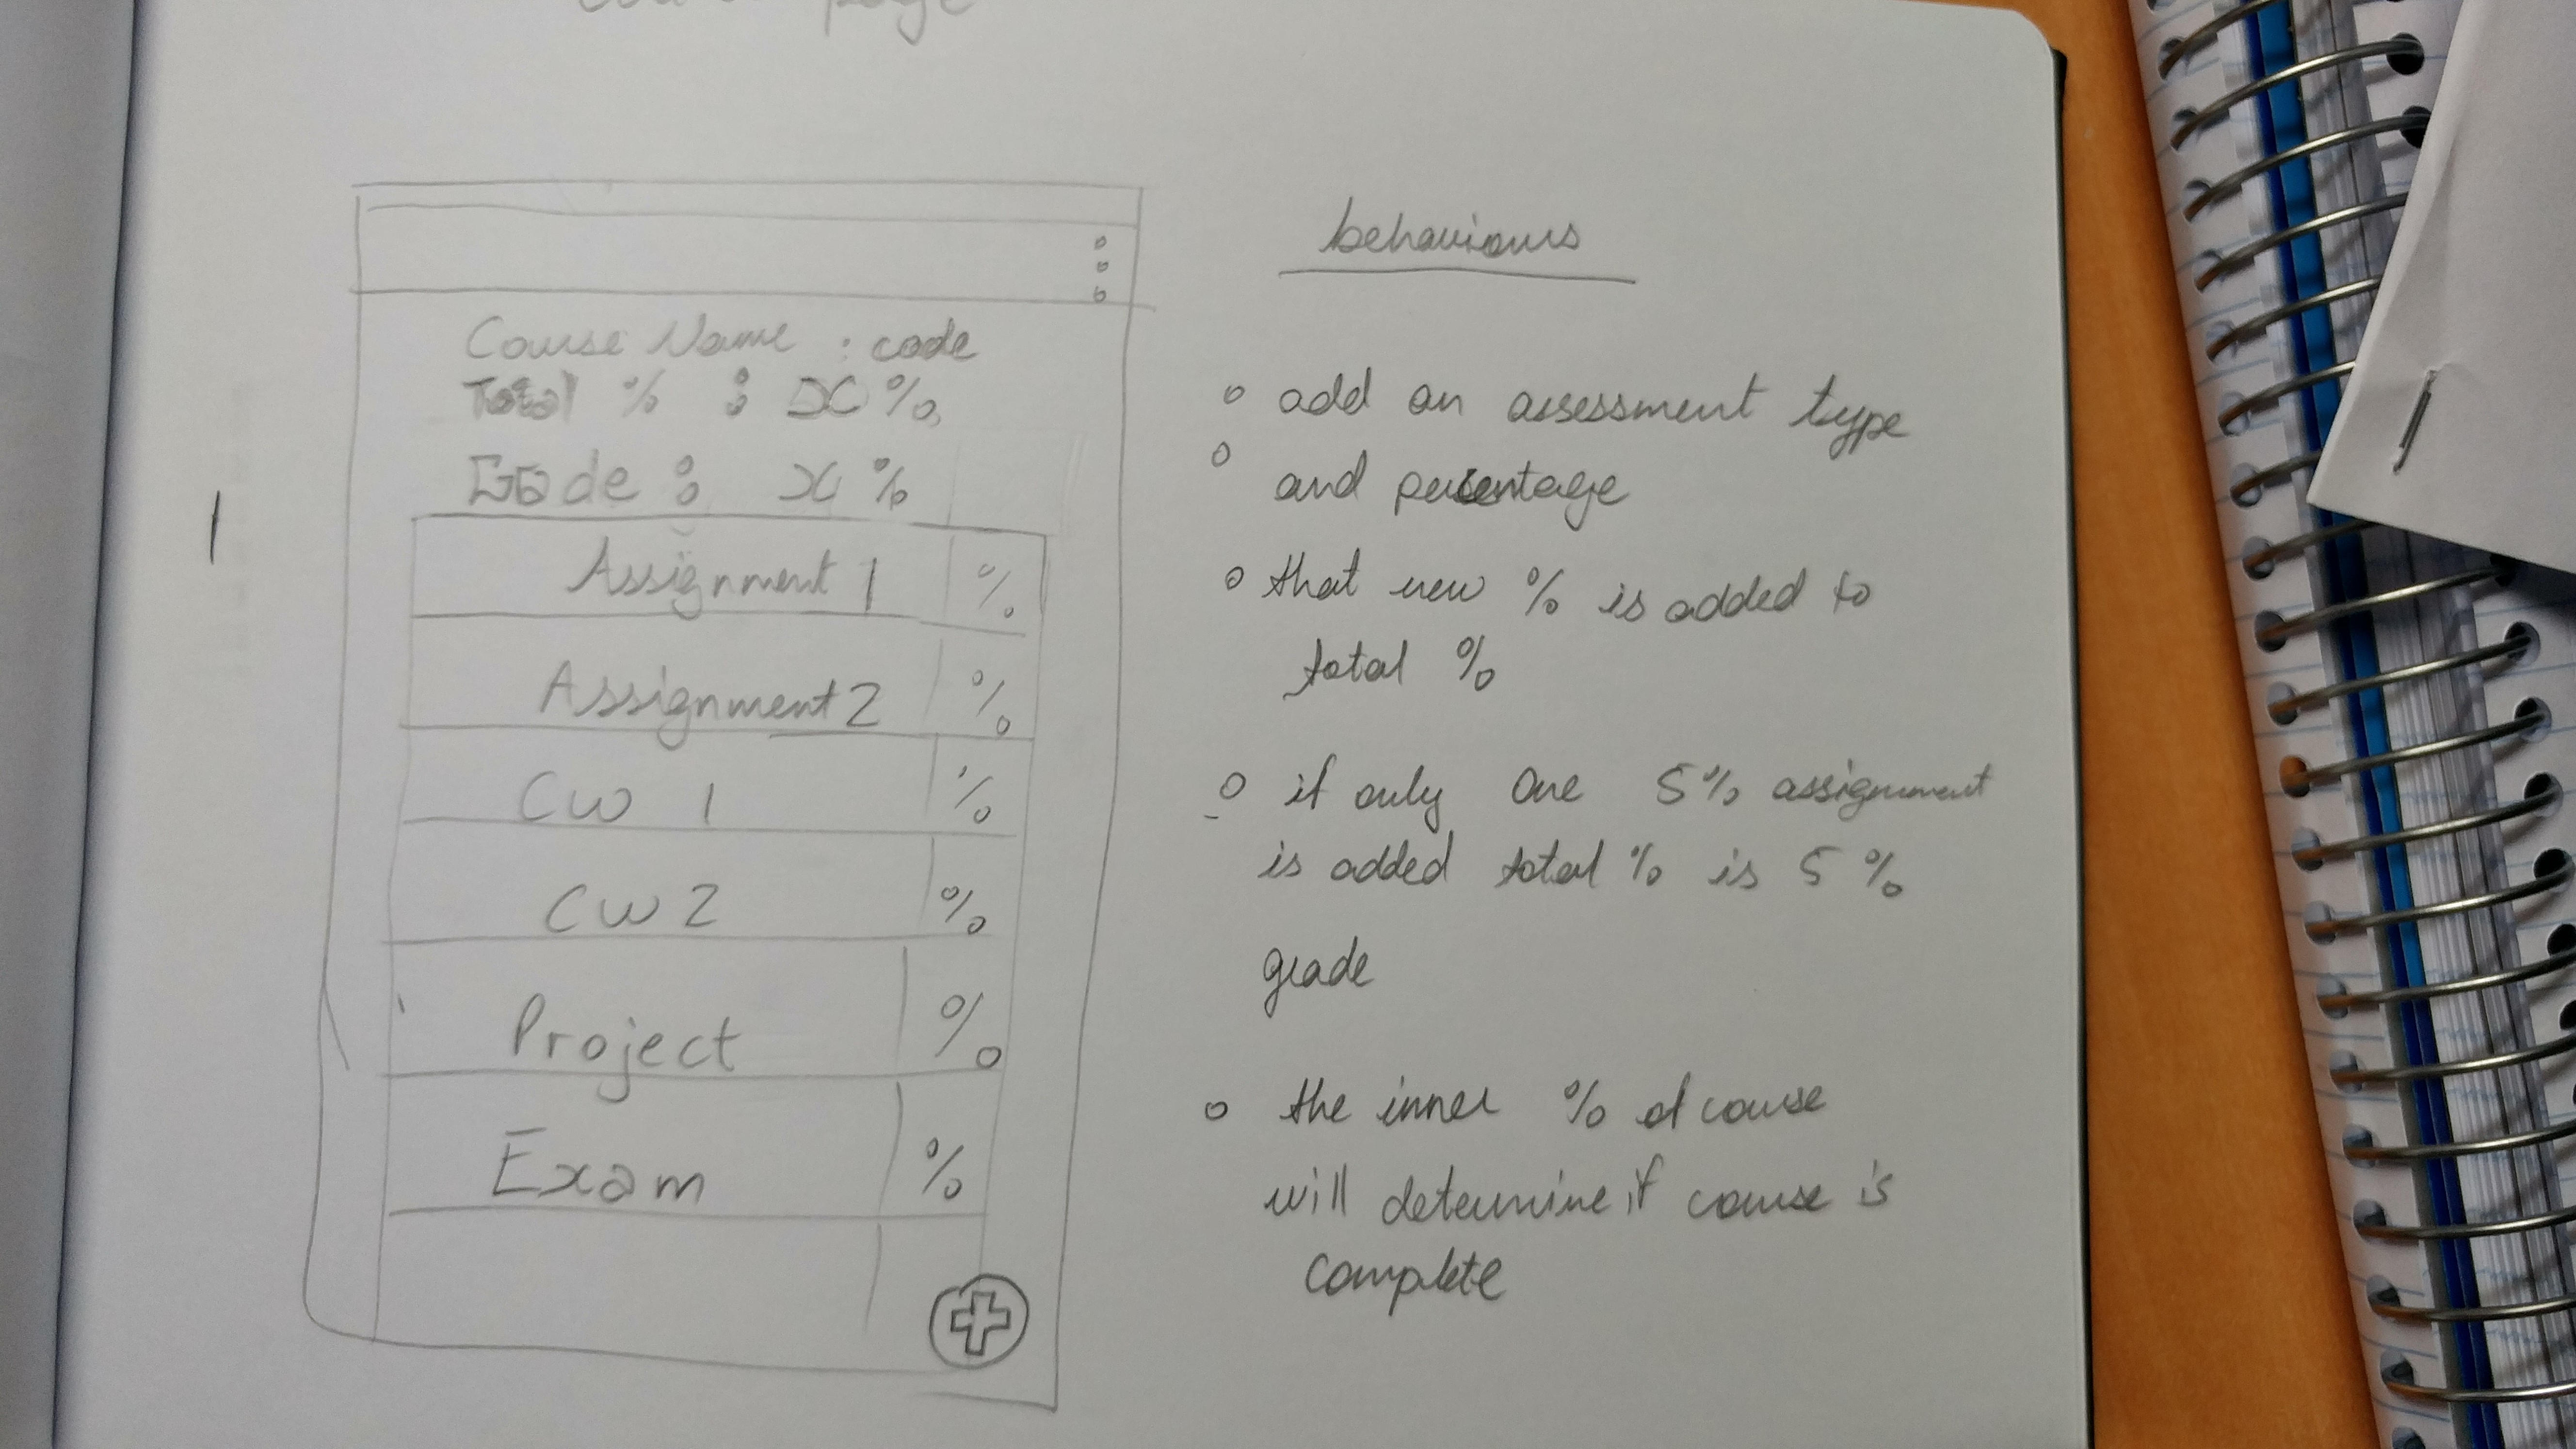 page
Course Name : code
Total % : x%
Grade : x %
Assignment 1 %
Assignment 2 %
CW 1 %
CW 2 %
Project %
Exam %
behaviours
add an assessment type
and percentage
that new % is added to
total %
if only one 5% assignment
is added total % is 5 %
grade
the inner % of course
will determine if course is
complete